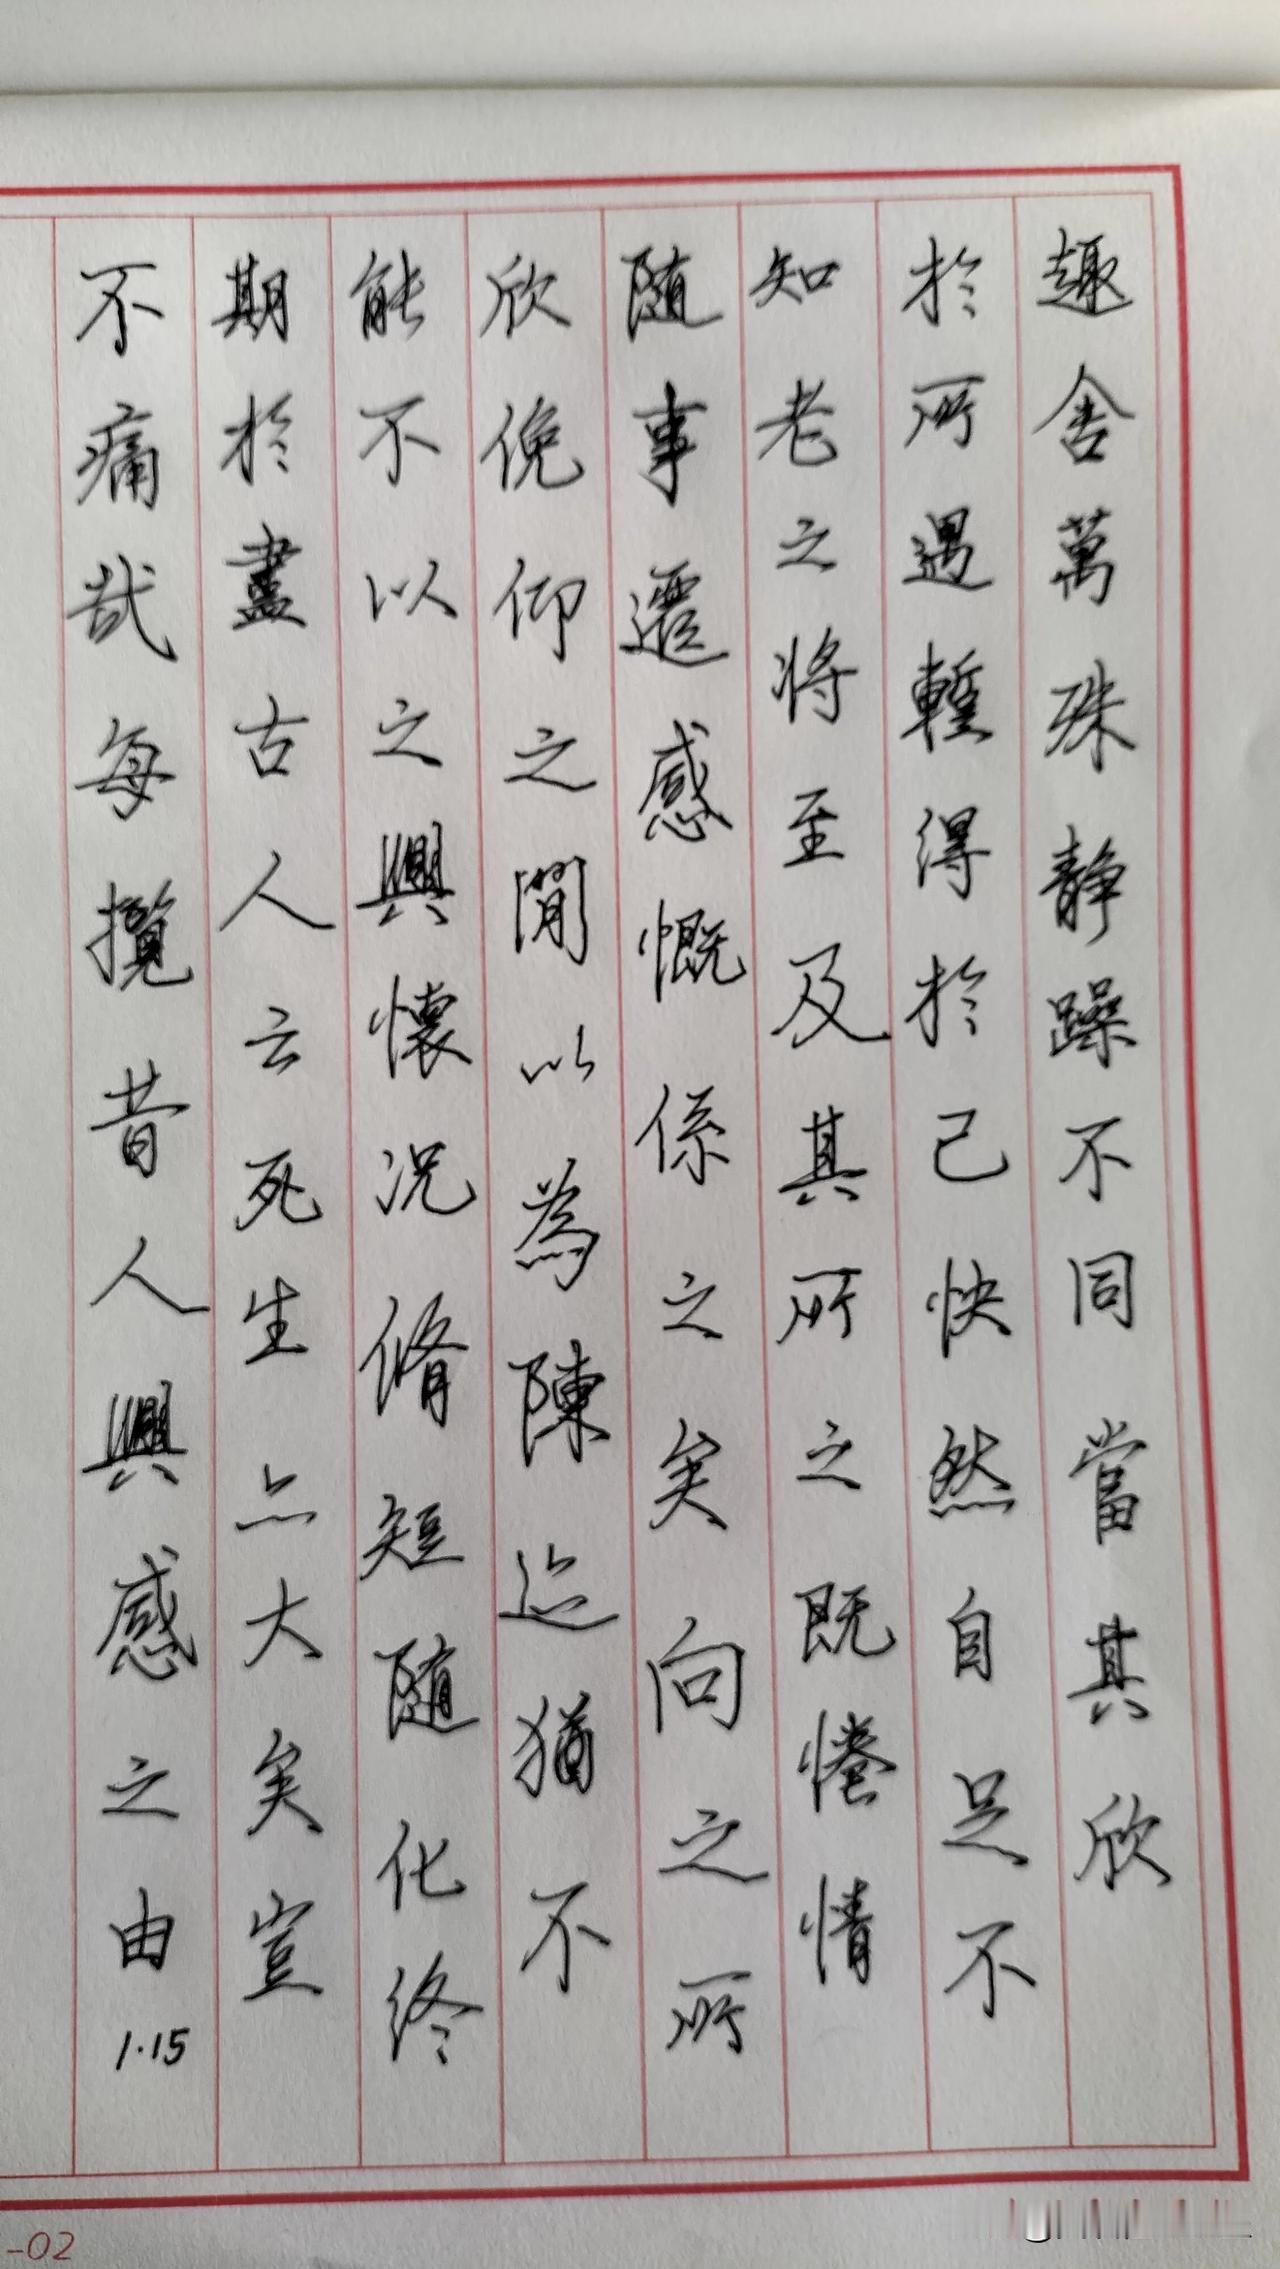 趣舍萬殊静躁不同當其欣
於所遇蹔得於己快然自足不
知老之将至及其所之既惓情
随事遷感慨係之矣向之所
欣俛仰之閒以為陳迹猶不
能不以之興懷況脩短随化終
期於盡古人云死生亦大矣豈
不痛哉每攬昔人興感之由
1.15
-02